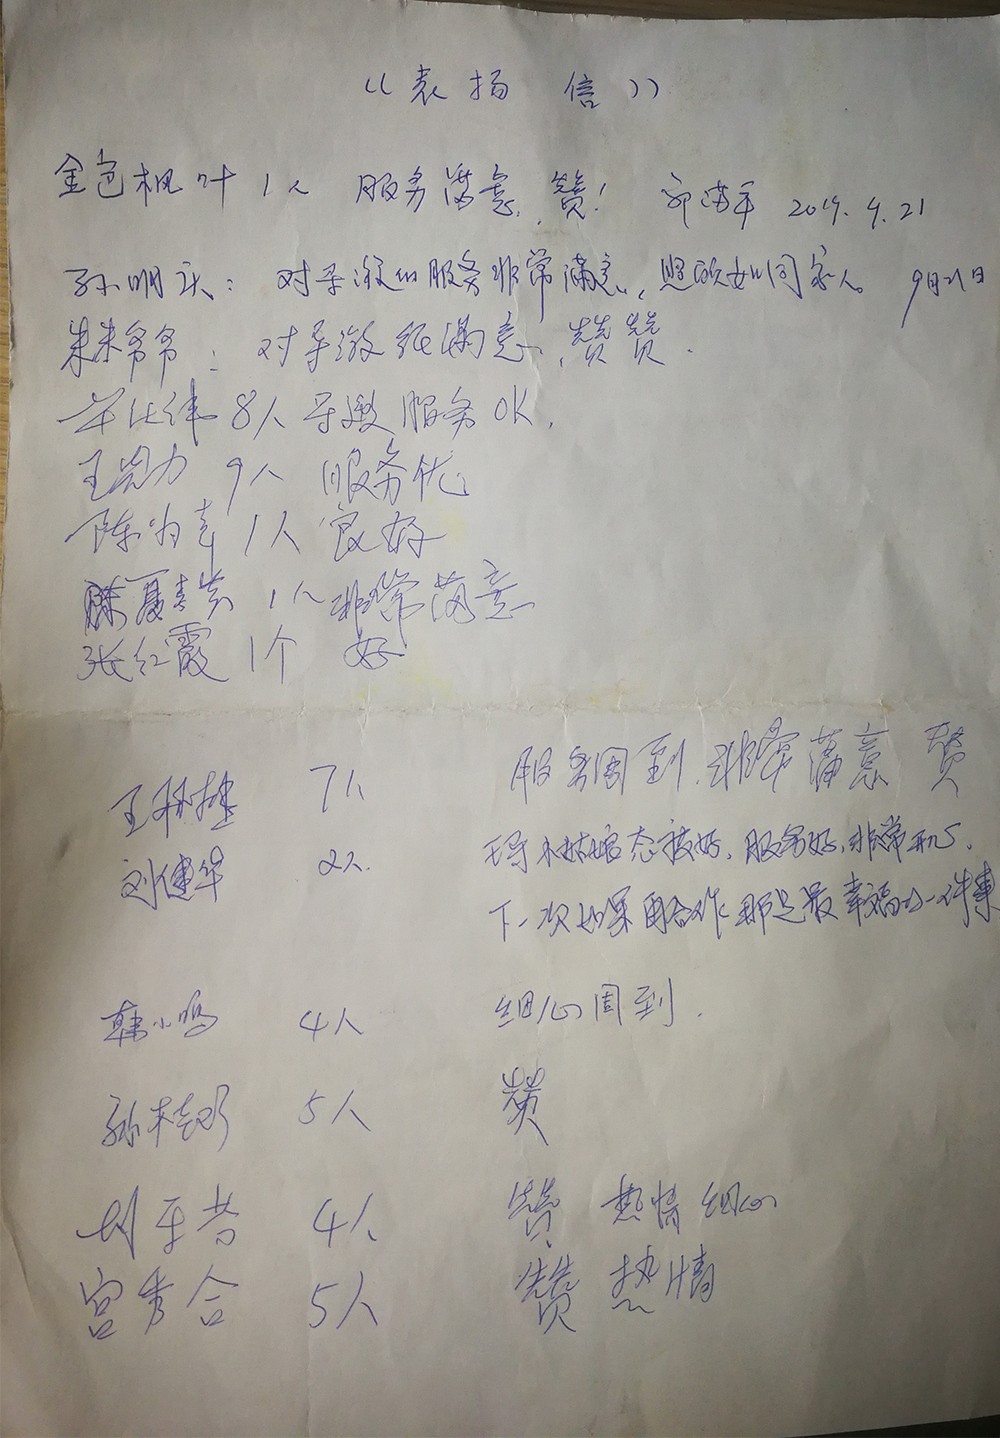 《表扬信》
金色枫叶 1人 服务满意，赞！ 2019.9.21
孙明 ：对导游的服务非常满意，照顾如同家人。 9月21日
朱朱爷爷：对导游很满意，赞赞.
8人 导游服务OK.
王 力 9人 服务优
陈为 1人 良好
陈夏 1人 非常满意
张红霞 1个 好
王 7人 服务周到，非常满意 赞
刘建华 2人. 导小姑娘态度好，服务好，非常开心.
下一次如果再合作，那是最幸福的一件事
韩小鸣 4人 细心周到.
孙桂 5人 赞
刘平 4人 赞 热情细心
宫秀合 5人 赞 热情